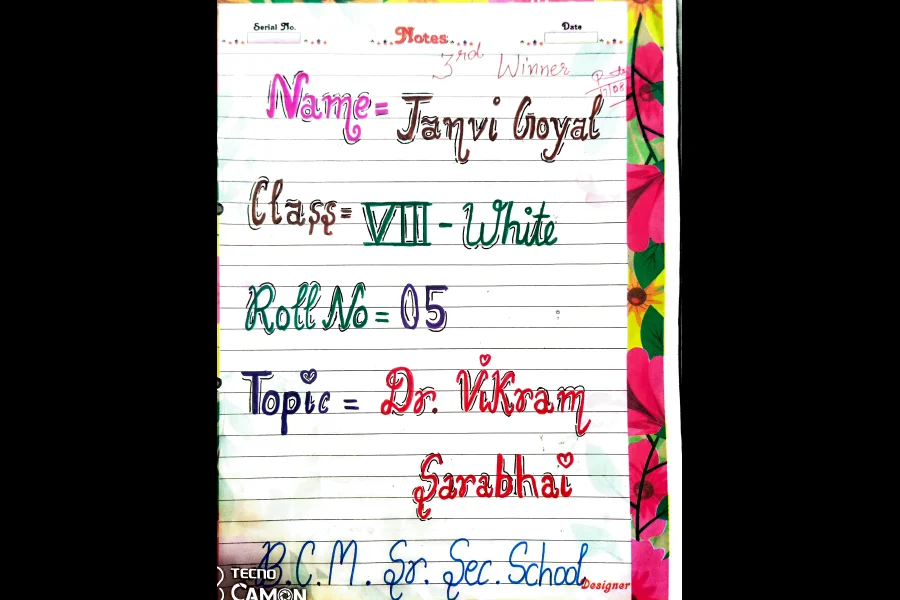 Serial No. Notes Date
3rd Winner
Name = Janvi Goyal
Class = VII - White
Roll No = 05
Topic = Dr. Vikram
Sarabhai
B.C.M. Sr. Sec. School
Designer
TECNO
CAMON